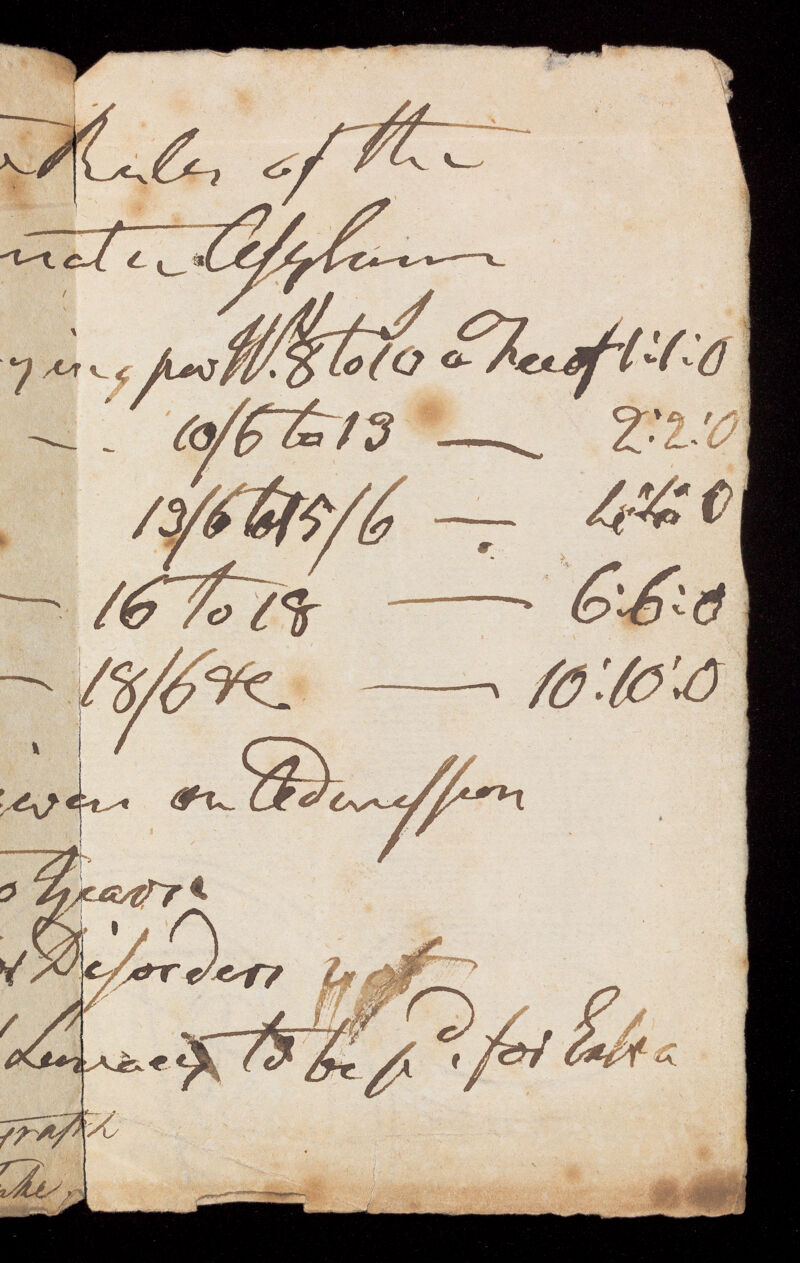 Rules of the
natic Asylum
ying per Wk. 8 to 10 a Fee of 1:1:0
— 10/6 to 13 — 2:2:0
13/6 to 15/6 — 0
— 16 to 18 — 6:6:0
— 18/6 &c — 10:10:0
iven on Admission
o Years
or Disorders not
Lunacy to be pd. for Extra